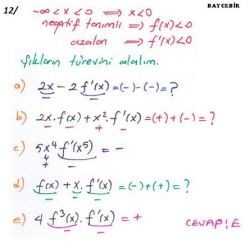 BAY CEBİR
12/ -∞<x<0 ⟹ x<0
negatif tanımlı ⟹ f(x)<0
azalan ⟹ f'(x)<0
şıkların türevini alalım.
a) 2x - 2f'(x) = (-)-(-) = ?
b) 2x.f(x) + x².f'(x) = (+)+(-) = ?
- - + -
c) 5x⁴ f'(x⁵) = -
+ -
d) f(x) + x.f'(x) = (-)+(+) = ?
- - -
e) 4 f³(x).f'(x) = +
- -
CEVAP: E